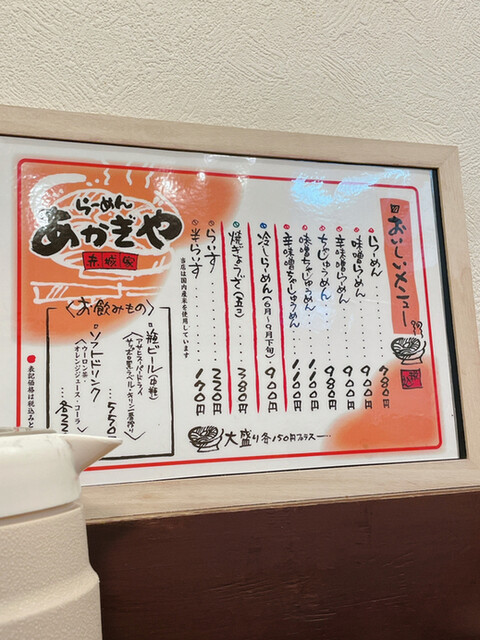 おいしいメニュー
らーめん 780円
味噌らーめん 900円
辛味噌らーめん 900円
ちゃしゅうめん 980円
味噌ちゃしゅうめん 1100円
辛味噌ちゃしゅうめん 1100円
冷しらーめん(6月〜9月下旬) 900円
焼ぎょうざ(五コ) 380円
らいす 220円
半らいす 170円
当店は国内産米を使用しています
大盛り各150円プラス
らーめん
あかぎや
赤城家
〈お飲みもの〉
瓶ビール(中瓶)
ソフトドリンク
(ウーロン茶・
オレンジジュース・コーラ
表記価格は税込みと